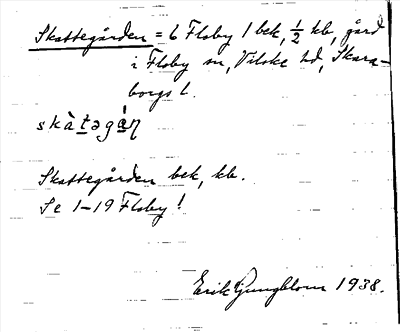 Skattegården = 6 Floby 1 bek, ½ kb, gård
i Floby sn, Vilske hd, Skara-
borgs l.
skàtəgán
Skattegården bek, kb.
Se 1-19 Floby!
Erik Ljungblom 1938.